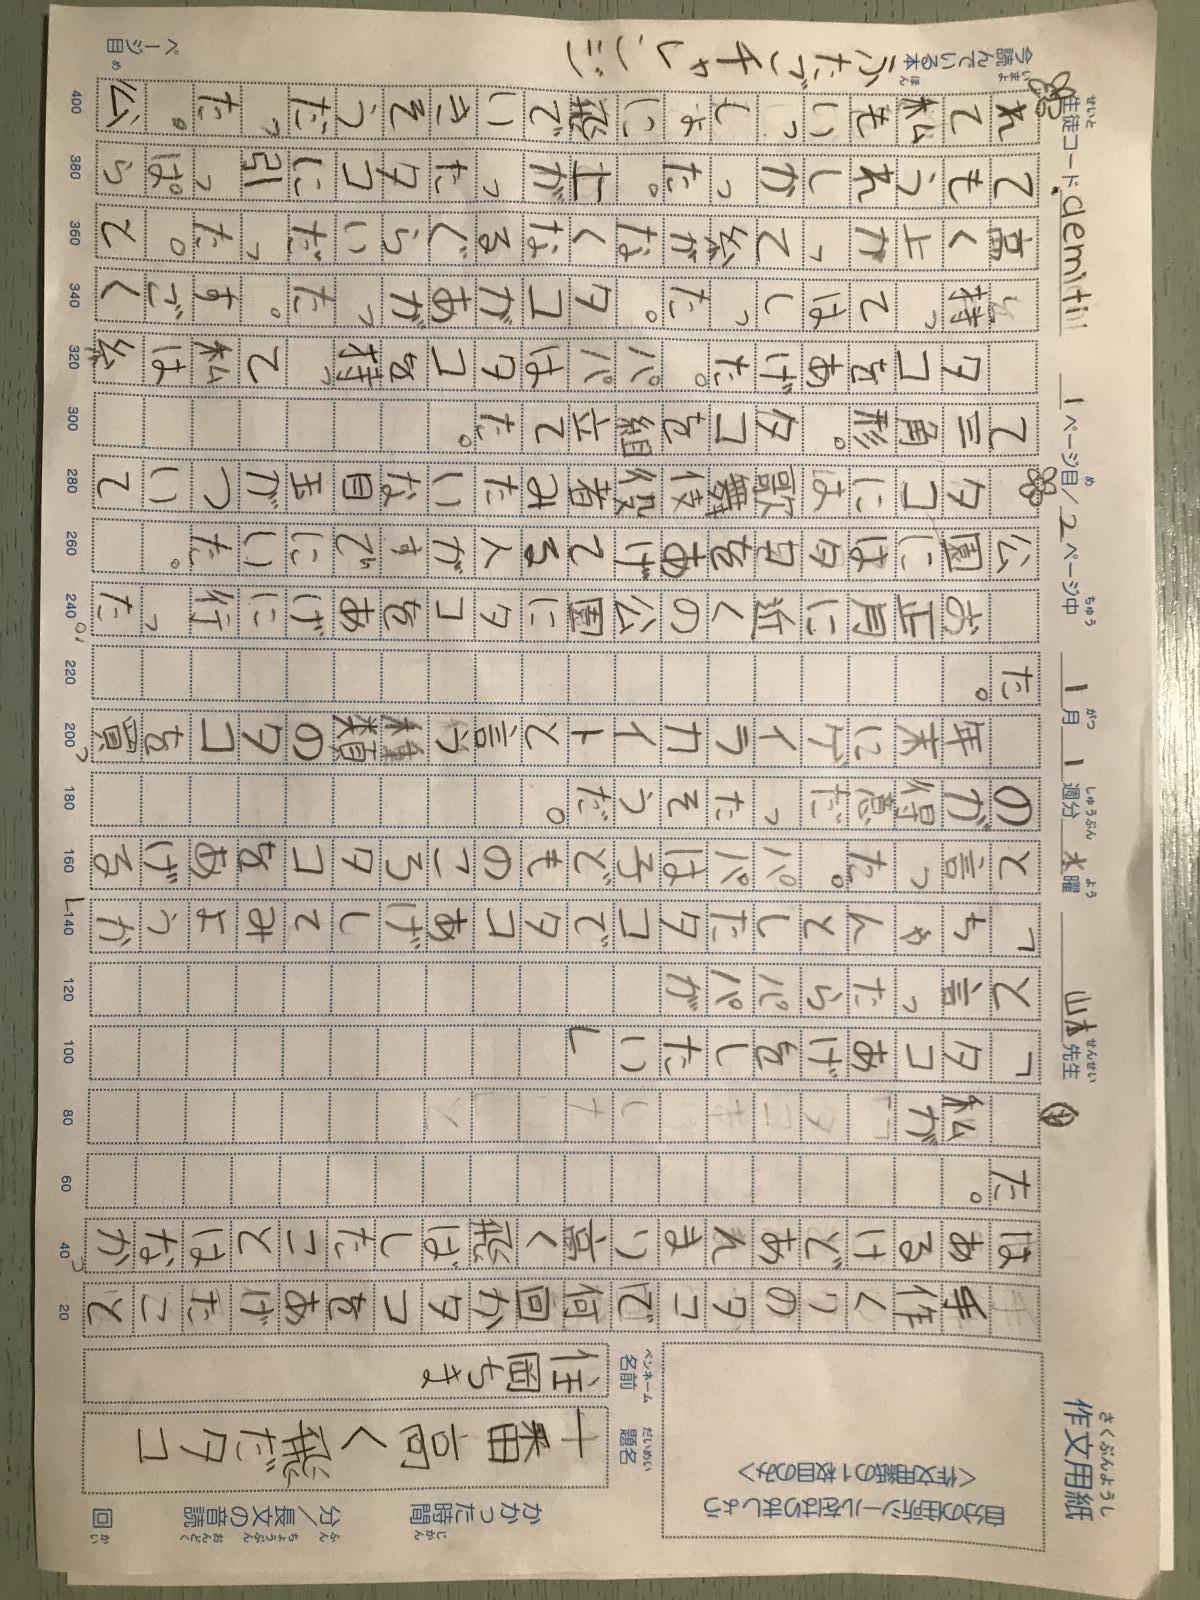 作文用紙
自分の住所シールをはりましょう
<作文用紙の1枚目のみ>
題名
十番高く飛だタコ
ペンネーム
名前
住岡ちま
かかった時間
分/長文の音読
回
生徒コード demiti
1ページ目/2ページ中
1月1週分
水曜
先生
手作くりのタコで何回かタコをあげたこと
はあるけどあんまり高く飛ばしたことはなかっ
た。
私が
「タコあげをしたい」
と言ったらパパが
「ちゃんとしたタコでタコあげしてみようか」
と言った。パパは子どものころタコをあげる
のが得意だったそうだ。
年末にゲイラカイトと言う種類のタコを買っ
た。
お正月に近くの公園にタコをあげに行った。
公園にはタタをあげてる人がすでにいた。
タコには歌舞伎役者みたいな目玉がついて
て三角形。タコを組立てた。
タコをあげた。パパはタコを持って私は糸
を持ってはしった。タコがあがった。すごく
高く上がって糸がなくなるぐらいだった。と
てもうれしかった。上がったタコに引っぱら
れて私もいっしょに飛でいきそうだった。公
20
40
60
80
100
120
140
160
180
200
220
240
260
280
300
320
340
360
380
400
今読んでいる本
ふたごチャレンジ
ページ目